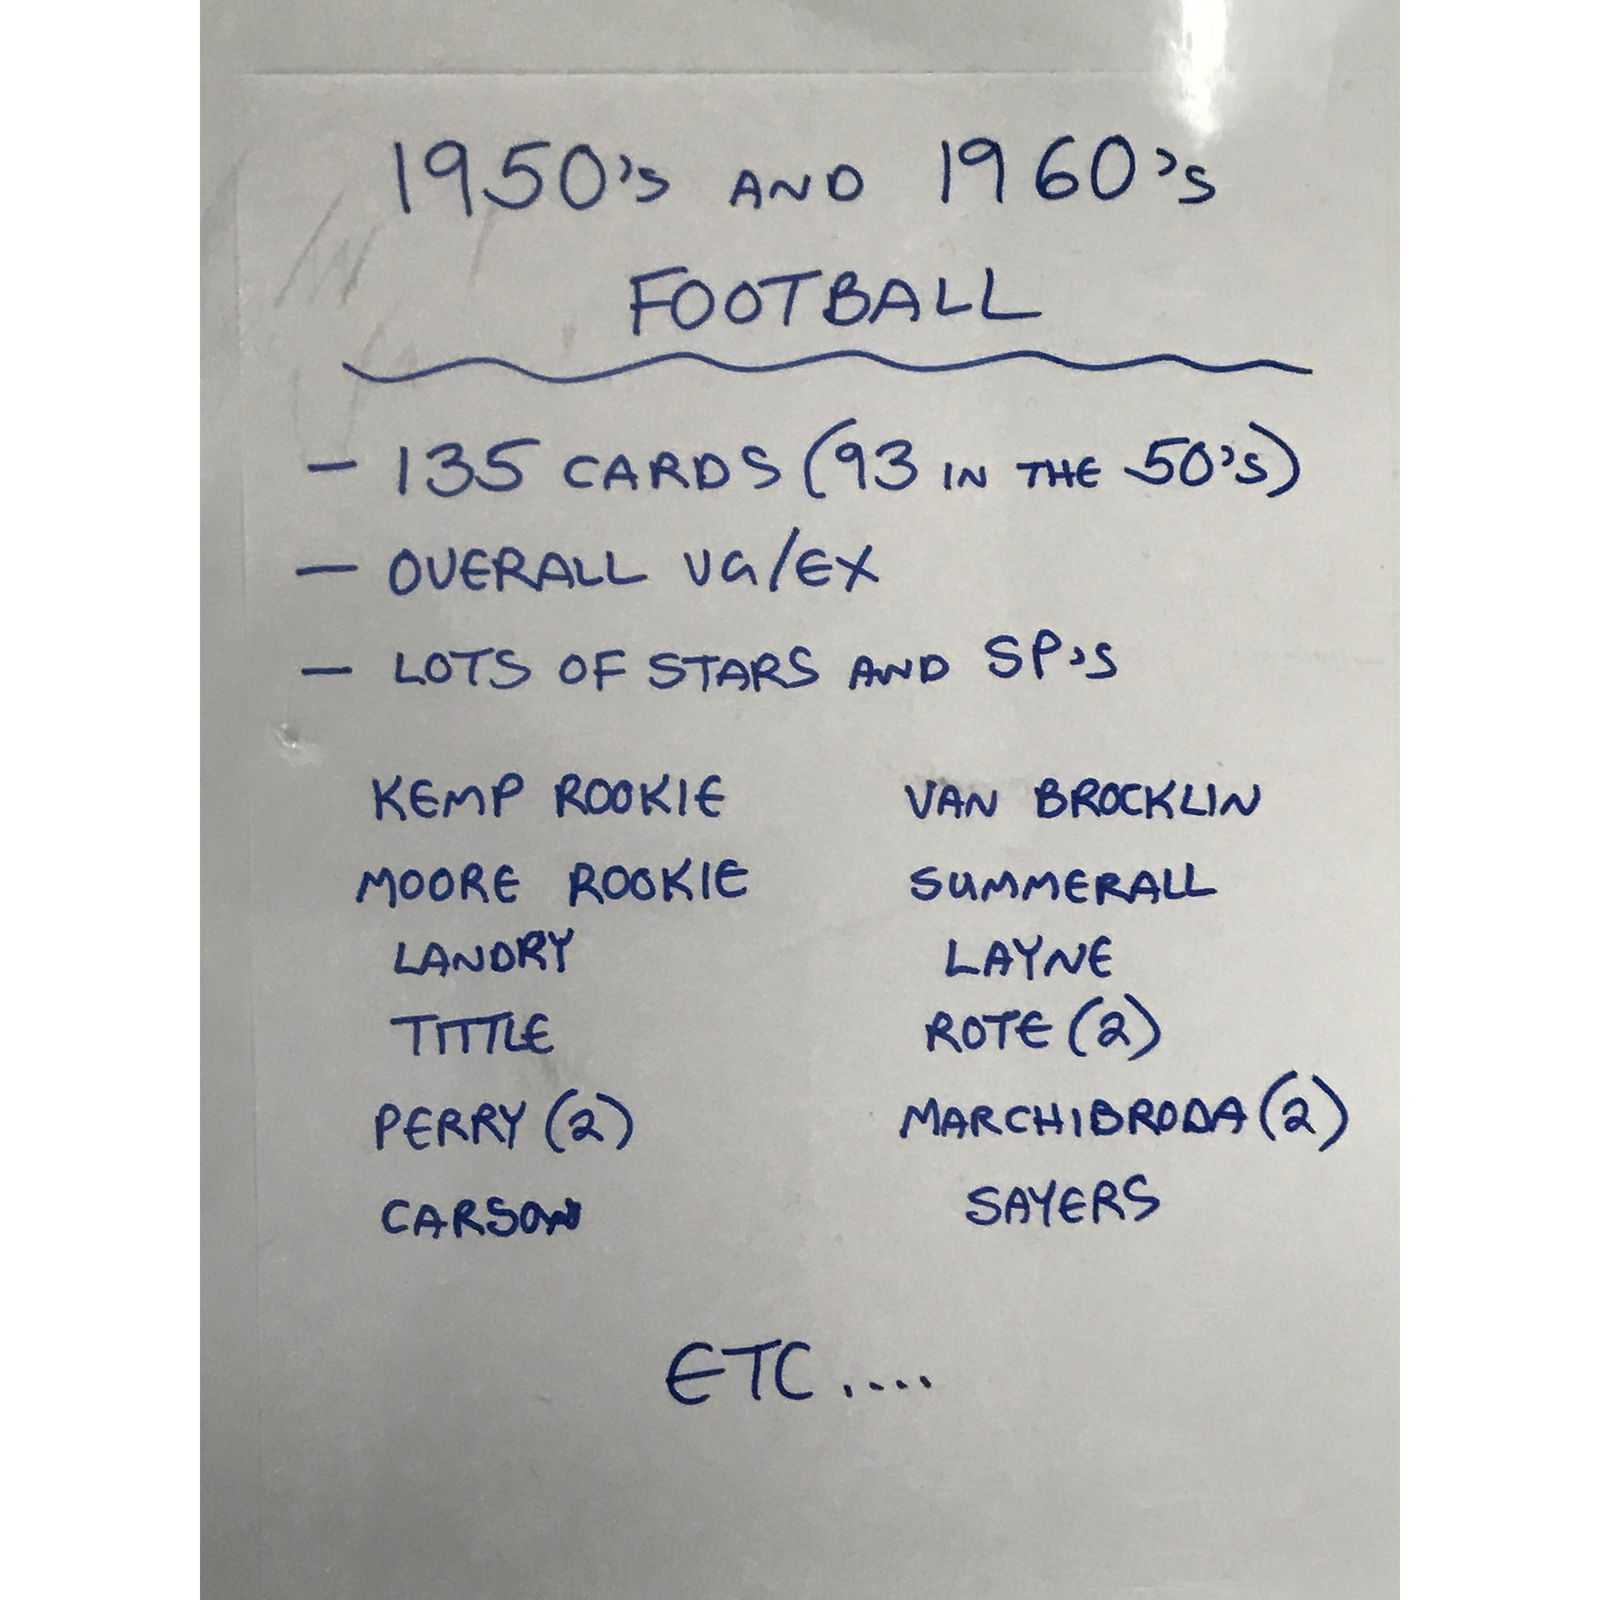 1950's AND 1960's
FOOTBALL
- 135 CARDS (93 IN THE 50'S)
- OVERALL VG/EX
- LOTS OF STARS AND SP'S
KEMP ROOKIE
MOORE ROOKIE
LANDRY
TITTLE
PERRY (2)
CARSON
VAN BROCKLIN
SUMMERALL
LAYNE
ROTE (2)
MARCHIBRODA (2)
SAYERS
ETC....